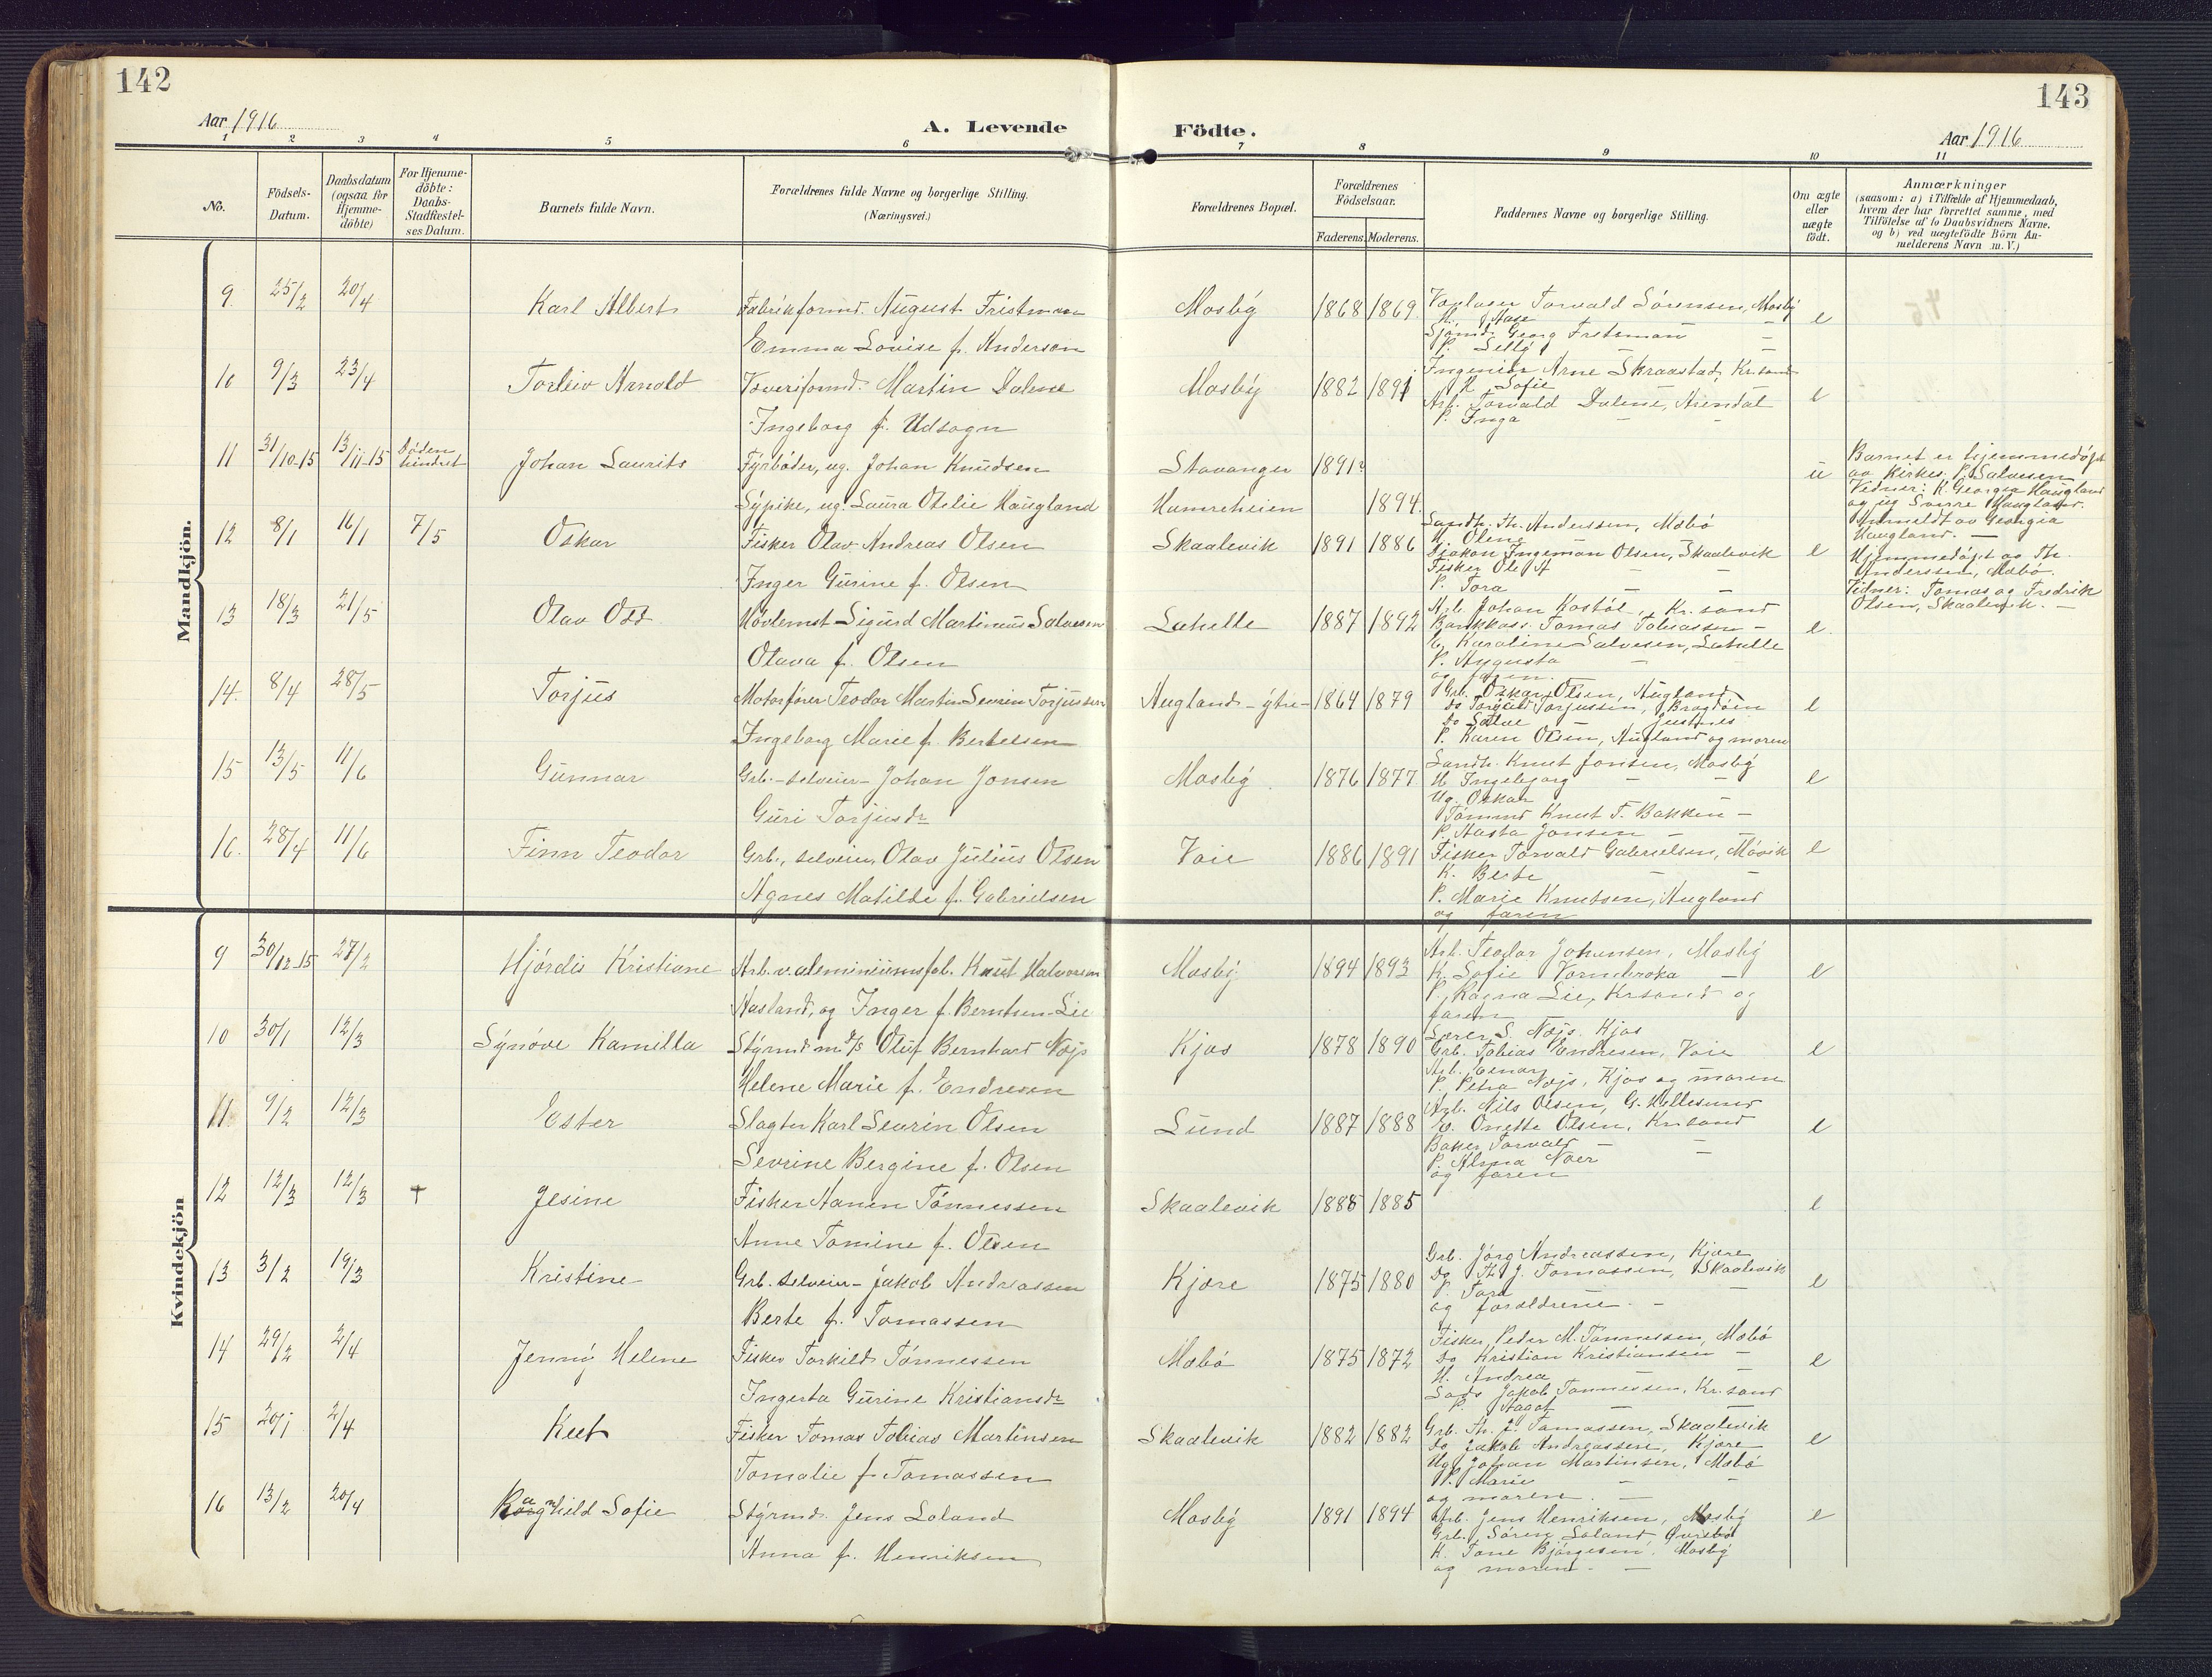 142
143
Aar 1916
A. Levende
Födte.
Aar 1916
1 2 3 4 5 6 7 8 9 10 11
No.
Födsels-Datum.
Daabsdatum (ogsaa for Hjemme-döbte)
For Hjemme-döbte: Daabs-Stadfæstel-ses Datum.
Barnets fulde Navn.
Forældrenes fulde Navne og borgerlige Stilling.
(Næringsvei.)
Forældrenes Bopæl.
Forældrenes Födselsaar.
Faderens. Moderens.
Faddernes Navne og borgerlige Stilling.
Om ægte eller uægte födt.
Anmærkninger
(saasom: a) i Tilfælde af Hjemmedaab,
hvem der har forrettet samme, med
Tilföielse af to Daabsvidners Navne.
og b) ved uægtefödte Börn An-
melderens Navn m. V.)
Mandkjön.
9 25/2 20/4 Karl Albert Fabrikformd. August Fristman Mosby 1868 1869 Torvald Sørensen, Mosby e
Sjømd. Georg Fristman —
Emma Lovise f. Anderson
P. Selly —
10 9/3 23/4 Torleiv Arnold Væveriformd. Martin Dalene Mosby 1882 1891 Ingeniør Arne Skraastad, Kr.sand e
K. Sofie
Arb. Torvald Dalene, Arendal
Ingeborg f. Udsogn
P. Inga —
11 31/10-15 13/11-15 Døden hindret Johan Laurits Fyrbøder, ug. Johan Knudsen Stavanger 1891? u Barnet er hjemmedøpt
av kirkes. P. Salvesen
Vidner: K. Georgia Haugland
Sypike, ug. Laura Otelie Haugland Hamreheien 1894
og ug Sverre Haugland.
Anmeldt av Georgia
Haugland. —
12 8/1 16/1 7/5 Oskar Fisker Olav Andreas Olsen Skaalevik 1891 1886 Landh. Th. Anderssen, Mæbø e
K. Olene
Diakon Ingeman Olsen, Skaalevik
Fisker Ole A — —
Inger Gurine f. Olsen
P. Tora — —
Hjemmedøpt av Th.
Anderssen, Mæbø.
Vidner: Tomas og Fredrik
Olsen, Skaalevik. —
13 18/3 21/5 Olav Odd Høvlemst. Sigurd Martinius Salvesen Lahelle 1887 1892 Arb. Johan Kostøl, Kr.sand e.
Bankkass. Tomas Tobiassen —
E. Karoline Salvesen, Lahelle
Olava f. Olsen
P. Augusta —
og faren. —
14. 8/4 28/5 Torjus Motorfører Teodor Martin Severin Torjussen Augland - ytre - 1864 1879 Grb. Oskar Olsen, Augland e
Do Torjus Torjussen, Bragdøen
Do Salve — Justnes
Ingeborg Marie f. Bertelsen
P. Karen Olsen, Augland og moren
15 13/5 11/6 Gunnar Grb.-selveier- Johan Jonsen Mosby 1876 1877 Landh. Knut Jonsen, Mosby e
K. Ingebjørg — —
Ug. Oskar —
Guri Torjusdr
Tømmd Knut T. Bakken —
P. Aasta Jonsen — —
16. 28/4 11/6 Finn Teodor Grb., selveier, Olav Julius Olsen Voie 1886 1891 Fisker Torvald Gabrielsen, Møvik e
K. Berte — —
Agnes Matilde f. Gabrielsen
P. Marie Knutsen, Augland
og faren
Kvindekjön
9 30/12-15 27/2 Hjørdis Kristiane Arb. v. aleminiumsfab. Knut Halvorsen Mosby 1894 1893 Arb. Teodor Johansen, Mosby e
K. Sofie —
Aasland, og Inger f. Berntsen Lie
P. Ragna Lie, Kr.sand og
faren
10 30/1 12/3 Synøve Kamilla Styrmd. m. d/s Oluf Bernhard Næjs Kjos 1878 1890 Lærer S. Næjs. Kjos e
Grb. Tobias Endresen, Voie
Arb. Einar —
Helene Marie f. Endresen
P. Petra Næjs, Kjos og moren
11 9/2 12/3 Ester Slagter Karl Severin Olsen Lund 1887 1888 Arb. Nils Olsen, G. Hellesund e
E. Onette Olsen, Kr.sand
Baker Torvald — —
Sevrine Bergine f. Olsen
P. Alma Noer
og faren
12 12/3 12/3 † Jesine Fisker Hanen Tønnessen Skaalevik 1886 1885 e
Anne Tomine f. Olsen
13 3/2 19/3 Kristine Grb. selveier - Jakob Andreassen Kjøre 1875 1880 Grb. Jørg Andreassen, Kjøre e
Do Th. J. Tomassen, Skaalevik
P. Tora — —
Berte f. Tomassen
og forældrene. —
14 29/2 2/4 Jenny Helene Fisker Torkild Tønnessen Mæbø 1875 1872 Fisker Peder M. Tønnessen, Mæbø e
Do Kristian Kristiansen —
K. Andrea —
Ingerta Gurine Kristiansdr
Lods Jakob Tønnessen, Kr.sand
P. Aagot — —
15 20/1 2/4 Rut Fisker Tomas Tobias Martinsen Skaalevik 1882 1882 Grb. Th. J. Tomassen, Skaalevik e
Do Jakob Andreassen, Kjøre
Ug. Johan Martinsen, Mæbø
Tomalie f. Tomassen
P. Marie — —
og moren. —
16 13/2 20/4 Ragnhild Sofie Styrmd. Jens Loland Mosby 1891 1894 Arb. Jens Henriksen, Mosby e
Grb. Søren Loland Øvrebø
Anna f. Henriksen
K. Tone Bjørgesen, Mosby
og moren. —